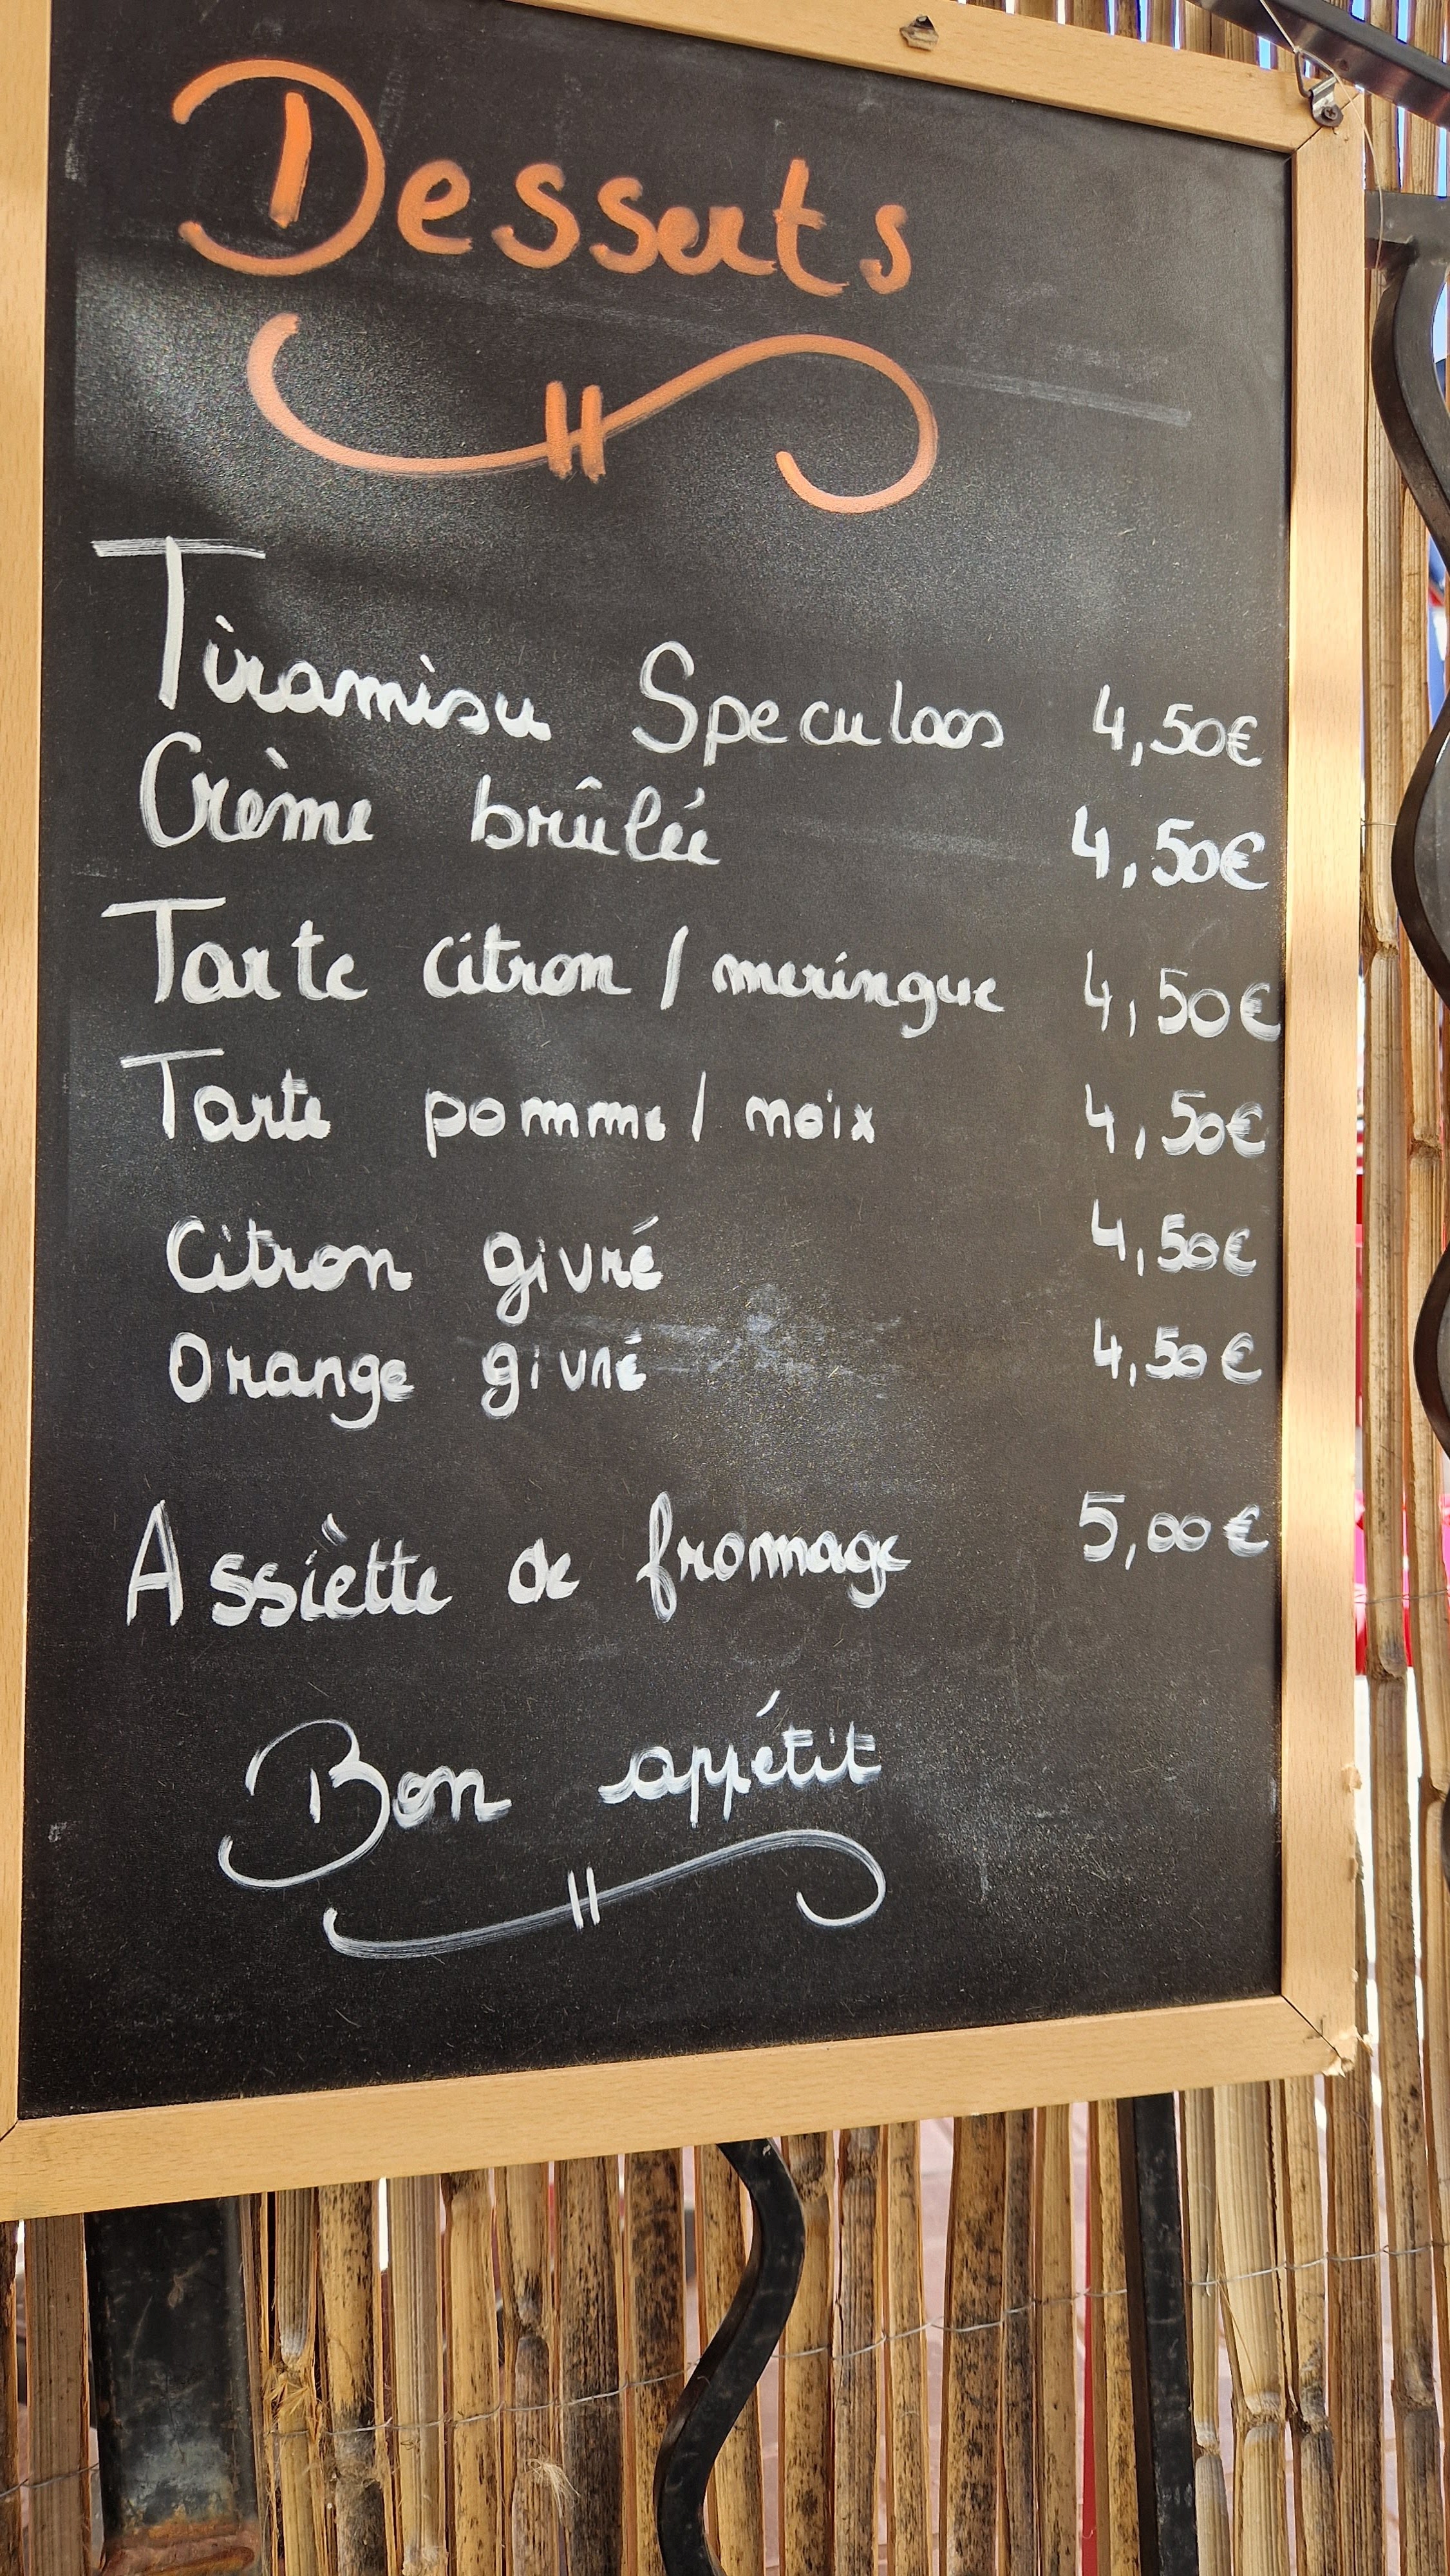 Desserts
Tiramisu Speculoos 4,50€
Crème brûlée 4,50€
Tarte citron / meringue 4,50€
Tarte pomme / noix 4,50€
Citron givré 4,50€
Orange givré 4,50€
Assiètte de fromage 5,00€
Bon appétit